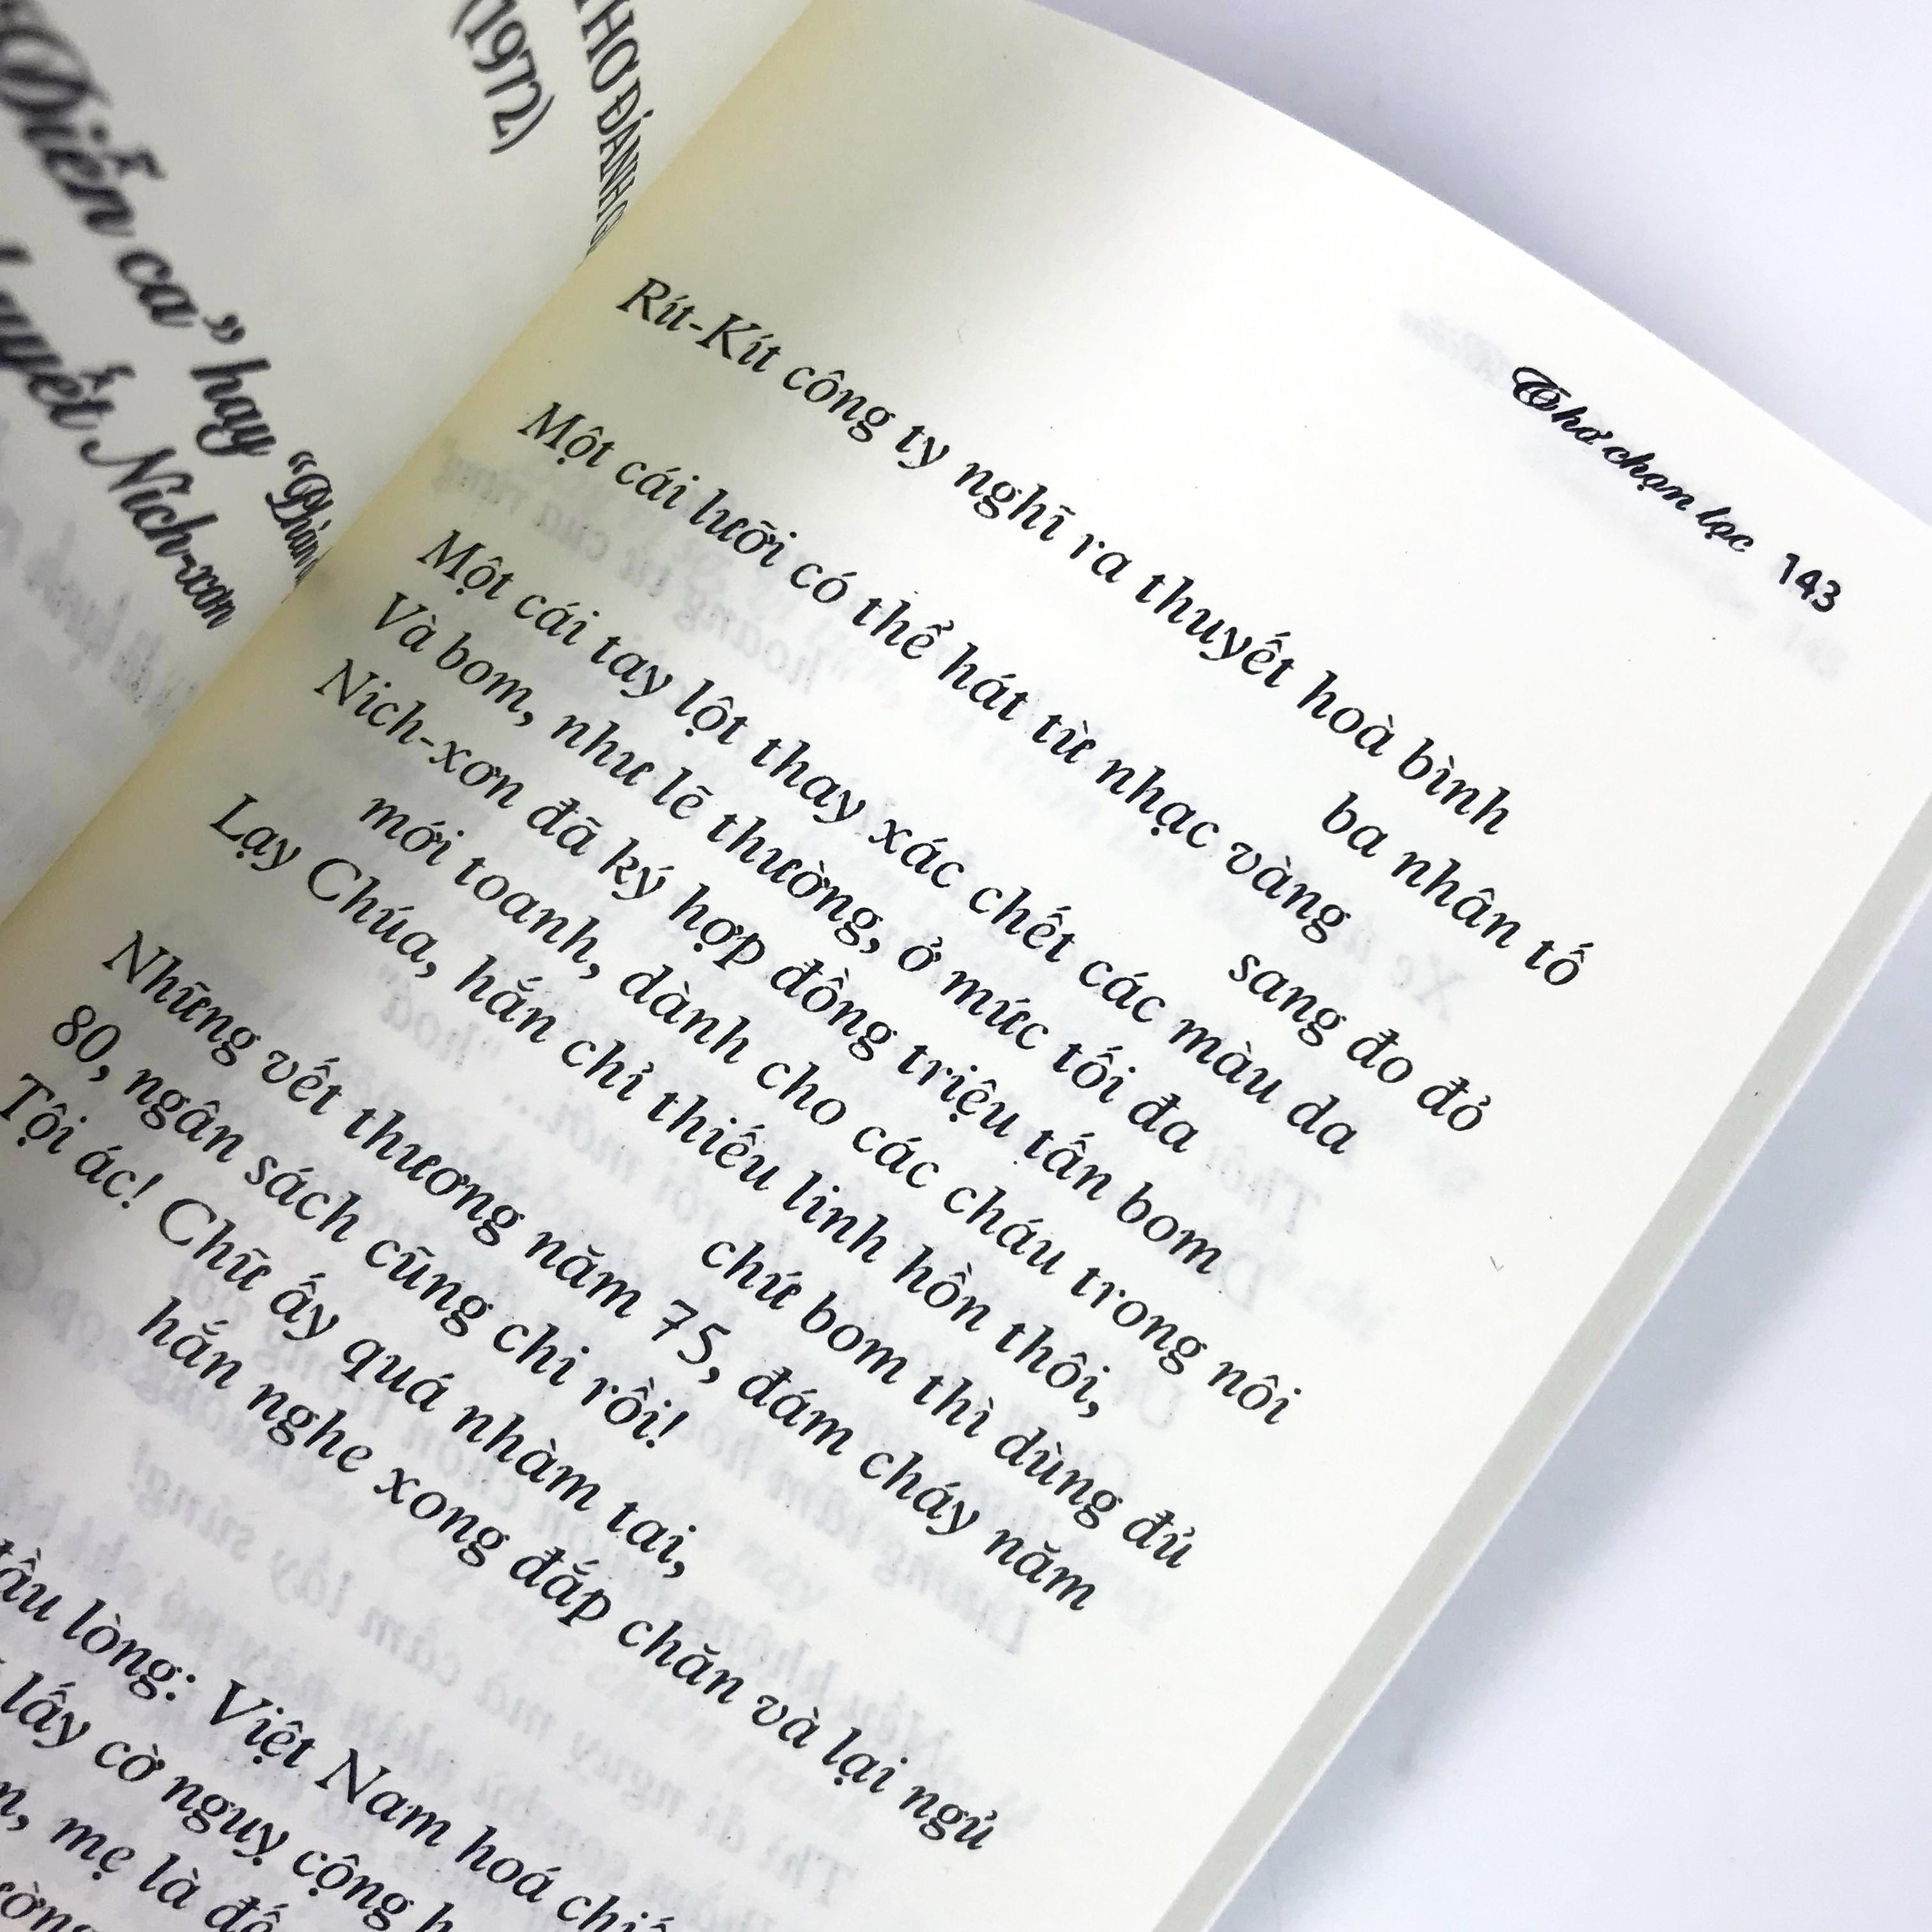 HƠ ĐÁNH
(1972)
"Diễn ca" hay "Phản
thuyết Ních-xơn
Thơ chọn lọc 143
Rít-Kít công ty nghĩ ra thuyết hoà bình
ba nhân tố
Một cái lưỡi có thể hát từ nhạc vàng
sang đo đỏ
Một cái tay lột thay xác chết các màu da
Và bom, như lẽ thường, ở mức tối đa
Nich-xơn đã ký hợp đồng triệu tấn bom
mới toanh, dành cho các cháu trong nôi
Lạy Chúa, hắn chỉ thiếu linh hồn thôi,
chứ bom thì dùng đủ
Những vết thương năm 75, đám cháy năm
80, ngân sách cũng chi rồi!
Tội ác! Chữ ấy quá nhàm tai,
hắn nghe xong đắp chăn và lại ngủ
đầu lòng: Việt Nam hoá
lấy cờ nguỵ cộng
mẹ là